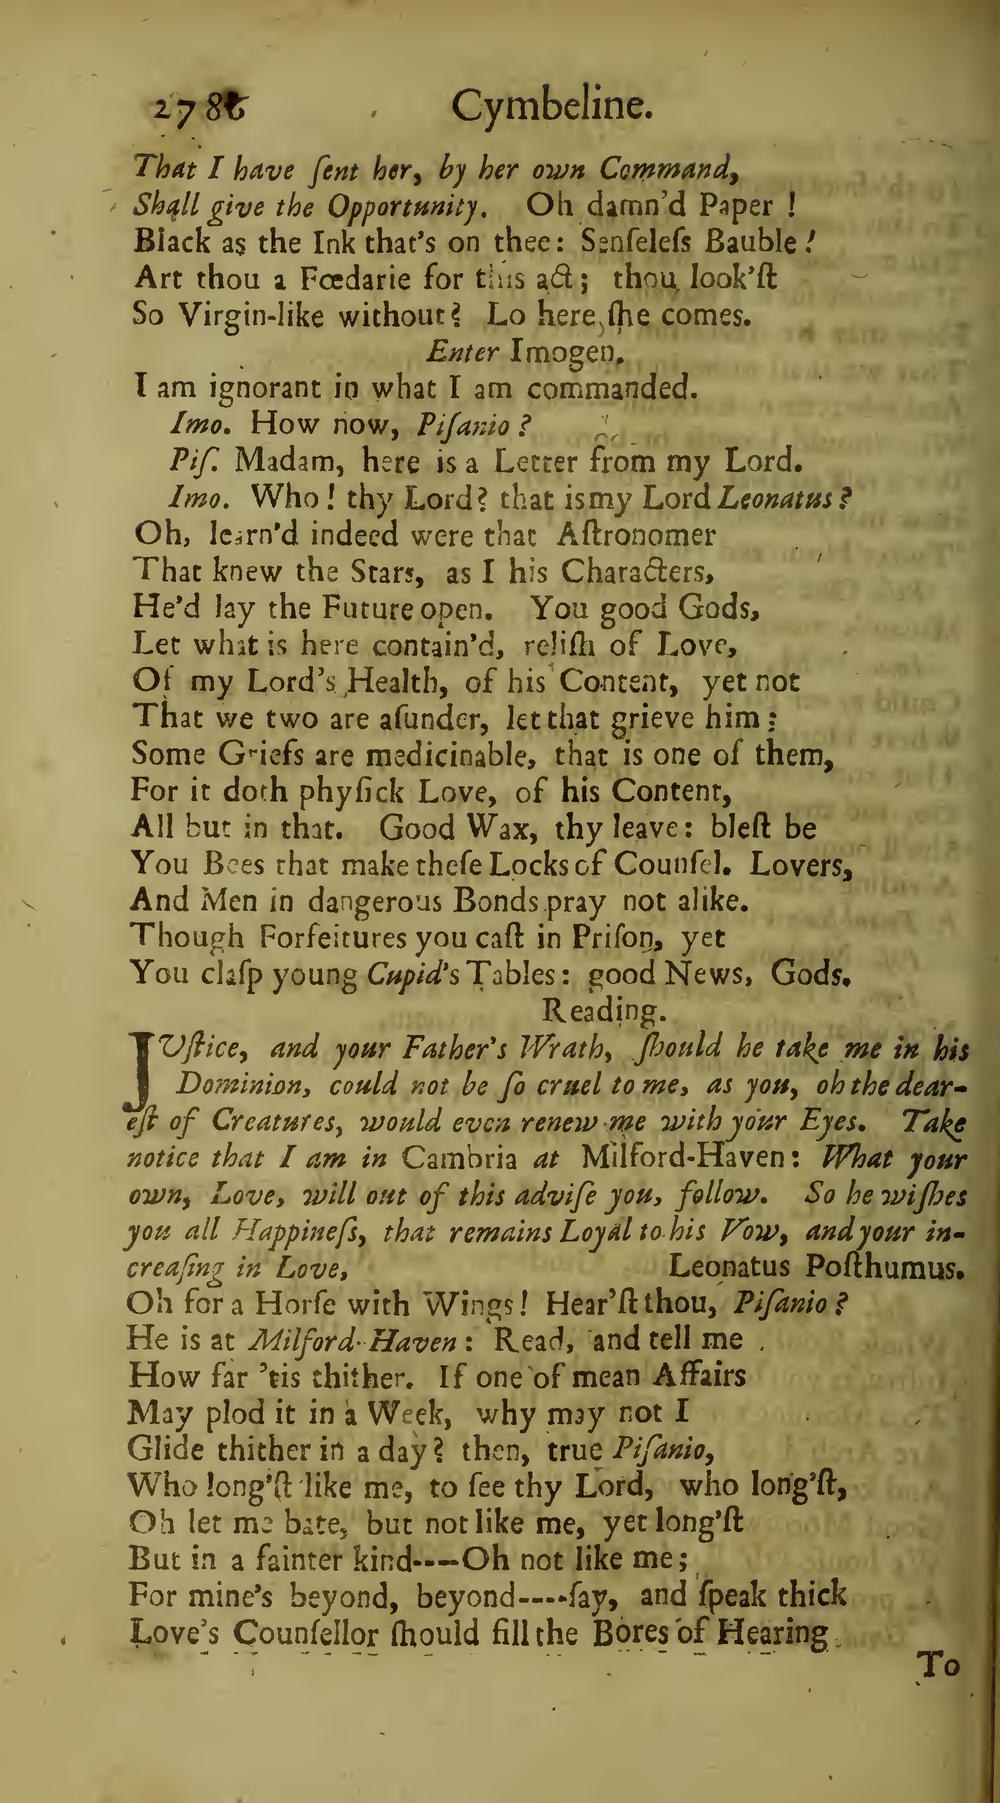 2786 Cymbeline.
That I have ſent her, by her own Command,
Shall give the Opportunity. Oh damn'd Paper !
Black as the Ink that's on thee: Senſeleſs Bauble!
Art thou a Fœdarie for this act; thou look'ſt
So Virgin-like without? Lo here ſhe comes.
Enter Imogen.
I am ignorant in what I am commanded.
Imo. How now, Piſanio ?
Piſ. Madam, here is a Letter from my Lord.
Imo. Who! thy Lord? that is my Lord Leonatus ?
Oh, learn'd indeed were that Aſtronomer
That knew the Stars, as I his Characters,
He'd lay the Future open. You good Gods,
Let what is here contain'd, reliſh of Love,
Of my Lord's Health, of his Content, yet not
That we two are aſunder, let that grieve him:
Some Griefs are medicinable, that is one of them,
For it doth phyſick Love, of his Content,
All but in that. Good Wax, thy leave: bleſt be
You Bees that make theſe Locks of Counſel. Lovers,
And Men in dangerous Bonds pray not alike.
Though Forfeitures you caſt in Priſon, yet
You claſp young Cupid's Tables: good News, Gods.
Reading.
JUſtice, and your Father's Wrath, ſhould he take me in his
Dominion, could not be ſo cruel to me, as you, oh the dear-
eſt of Creatures, would even renew me with your Eyes. Take
notice that I am in Cambria at Milford-Haven: What your
own, Love, will out of this adviſe you, follow. So he wiſhes
you all Happineſs, that remains Loyal to his Vow, and your in-
creaſing in Love, Leonatus Poſthumus.
Oh for a Horſe with Wings! Hear'ſt thou, Piſanio ?
He is at Milford-Haven: Read, and tell me
How far 'tis thither. If one of mean Affairs
May plod it in a Week, why may not I
Glide thither in a day? then, true Piſanio,
Who long'ſt like me, to ſee thy Lord, who long'ſt,
Oh let me bate, but not like me, yet long'ſt
But in a fainter kind----Oh not like me;
For mine's beyond, beyond----ſay, and ſpeak thick
Love's Counſellor ſhould fill the Bores of Hearing
To